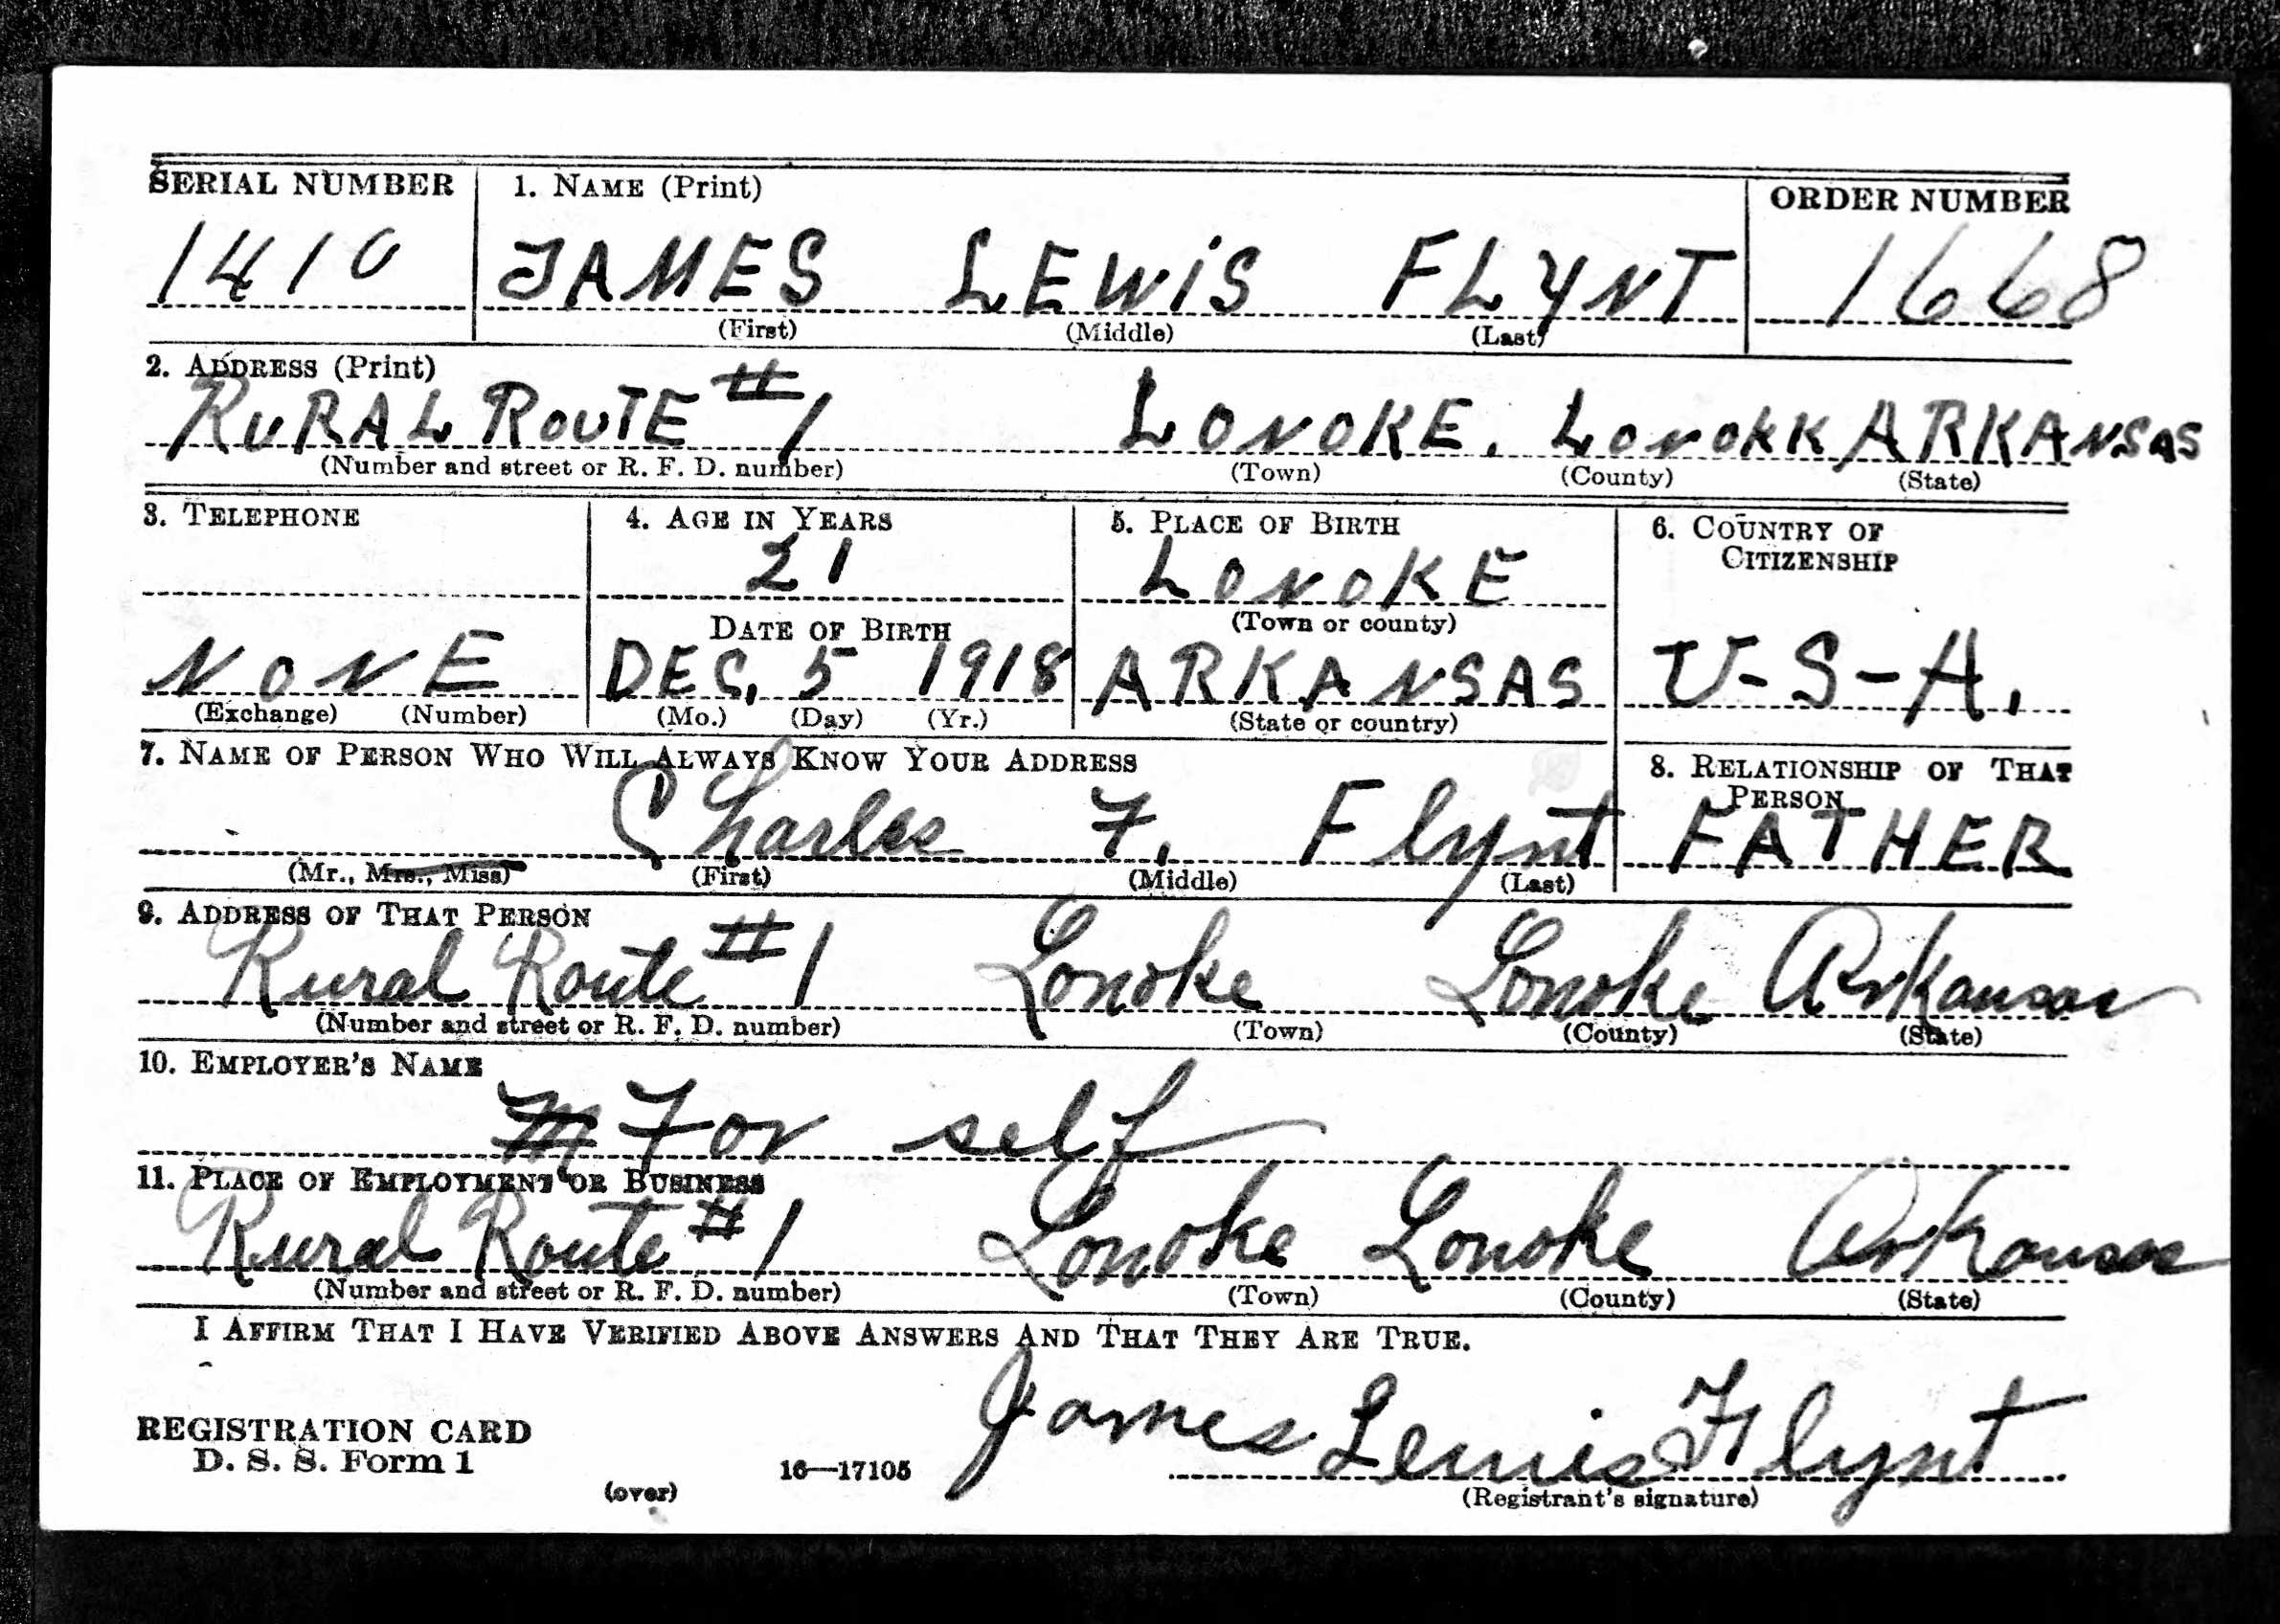 SERIAL NUMBER 1. NAME (Print) ORDER NUMBER
1410 JAMES LEWIS FLYNT 1668
(First) (Middle) (Last)
2. ADDRESS (Print)
RURAL ROUTE #1 LONOKE. LONOKK ARKANSAS
(Number and street or R. F. D. number) (Town) (County) (State)
3. TELEPHONE 4. AGE IN YEARS 5. PLACE OF BIRTH 6. COUNTRY OF CITIZENSHIP
21 LONOKE
DATE OF BIRTH (Town or county)
NONE DEC, 5 1918 ARKANSAS U-S-A.
(Exchange) (Number) (Mo.) (Day) (Yr.) (State or country)
7. NAME OF PERSON WHO WILL ALWAYS KNOW YOUR ADDRESS 8. RELATIONSHIP OF THAT PERSON
Charles F. Flynt FATHER
(Mr., Mrs., Miss) (First) (Middle) (Last)
9. ADDRESS OF THAT PERSON
Rural Route #1 Lonoke Lonoke Arkansas
(Number and street or R. F. D. number) (Town) (County) (State)
10. EMPLOYER'S NAME
For self
11. PLACE OF EMPLOYMENT OR BUSINESS
Rural Route #1 Lonoke Lonoke Arkansas
(Number and street or R. F. D. number) (Town) (County) (State)
I AFFIRM THAT I HAVE VERIFIED ABOVE ANSWERS AND THAT THEY ARE TRUE.
James Lewis Flynt
REGISTRATION CARD
D. S. S. Form 1 16—17105
(over) (Registrant's signature)